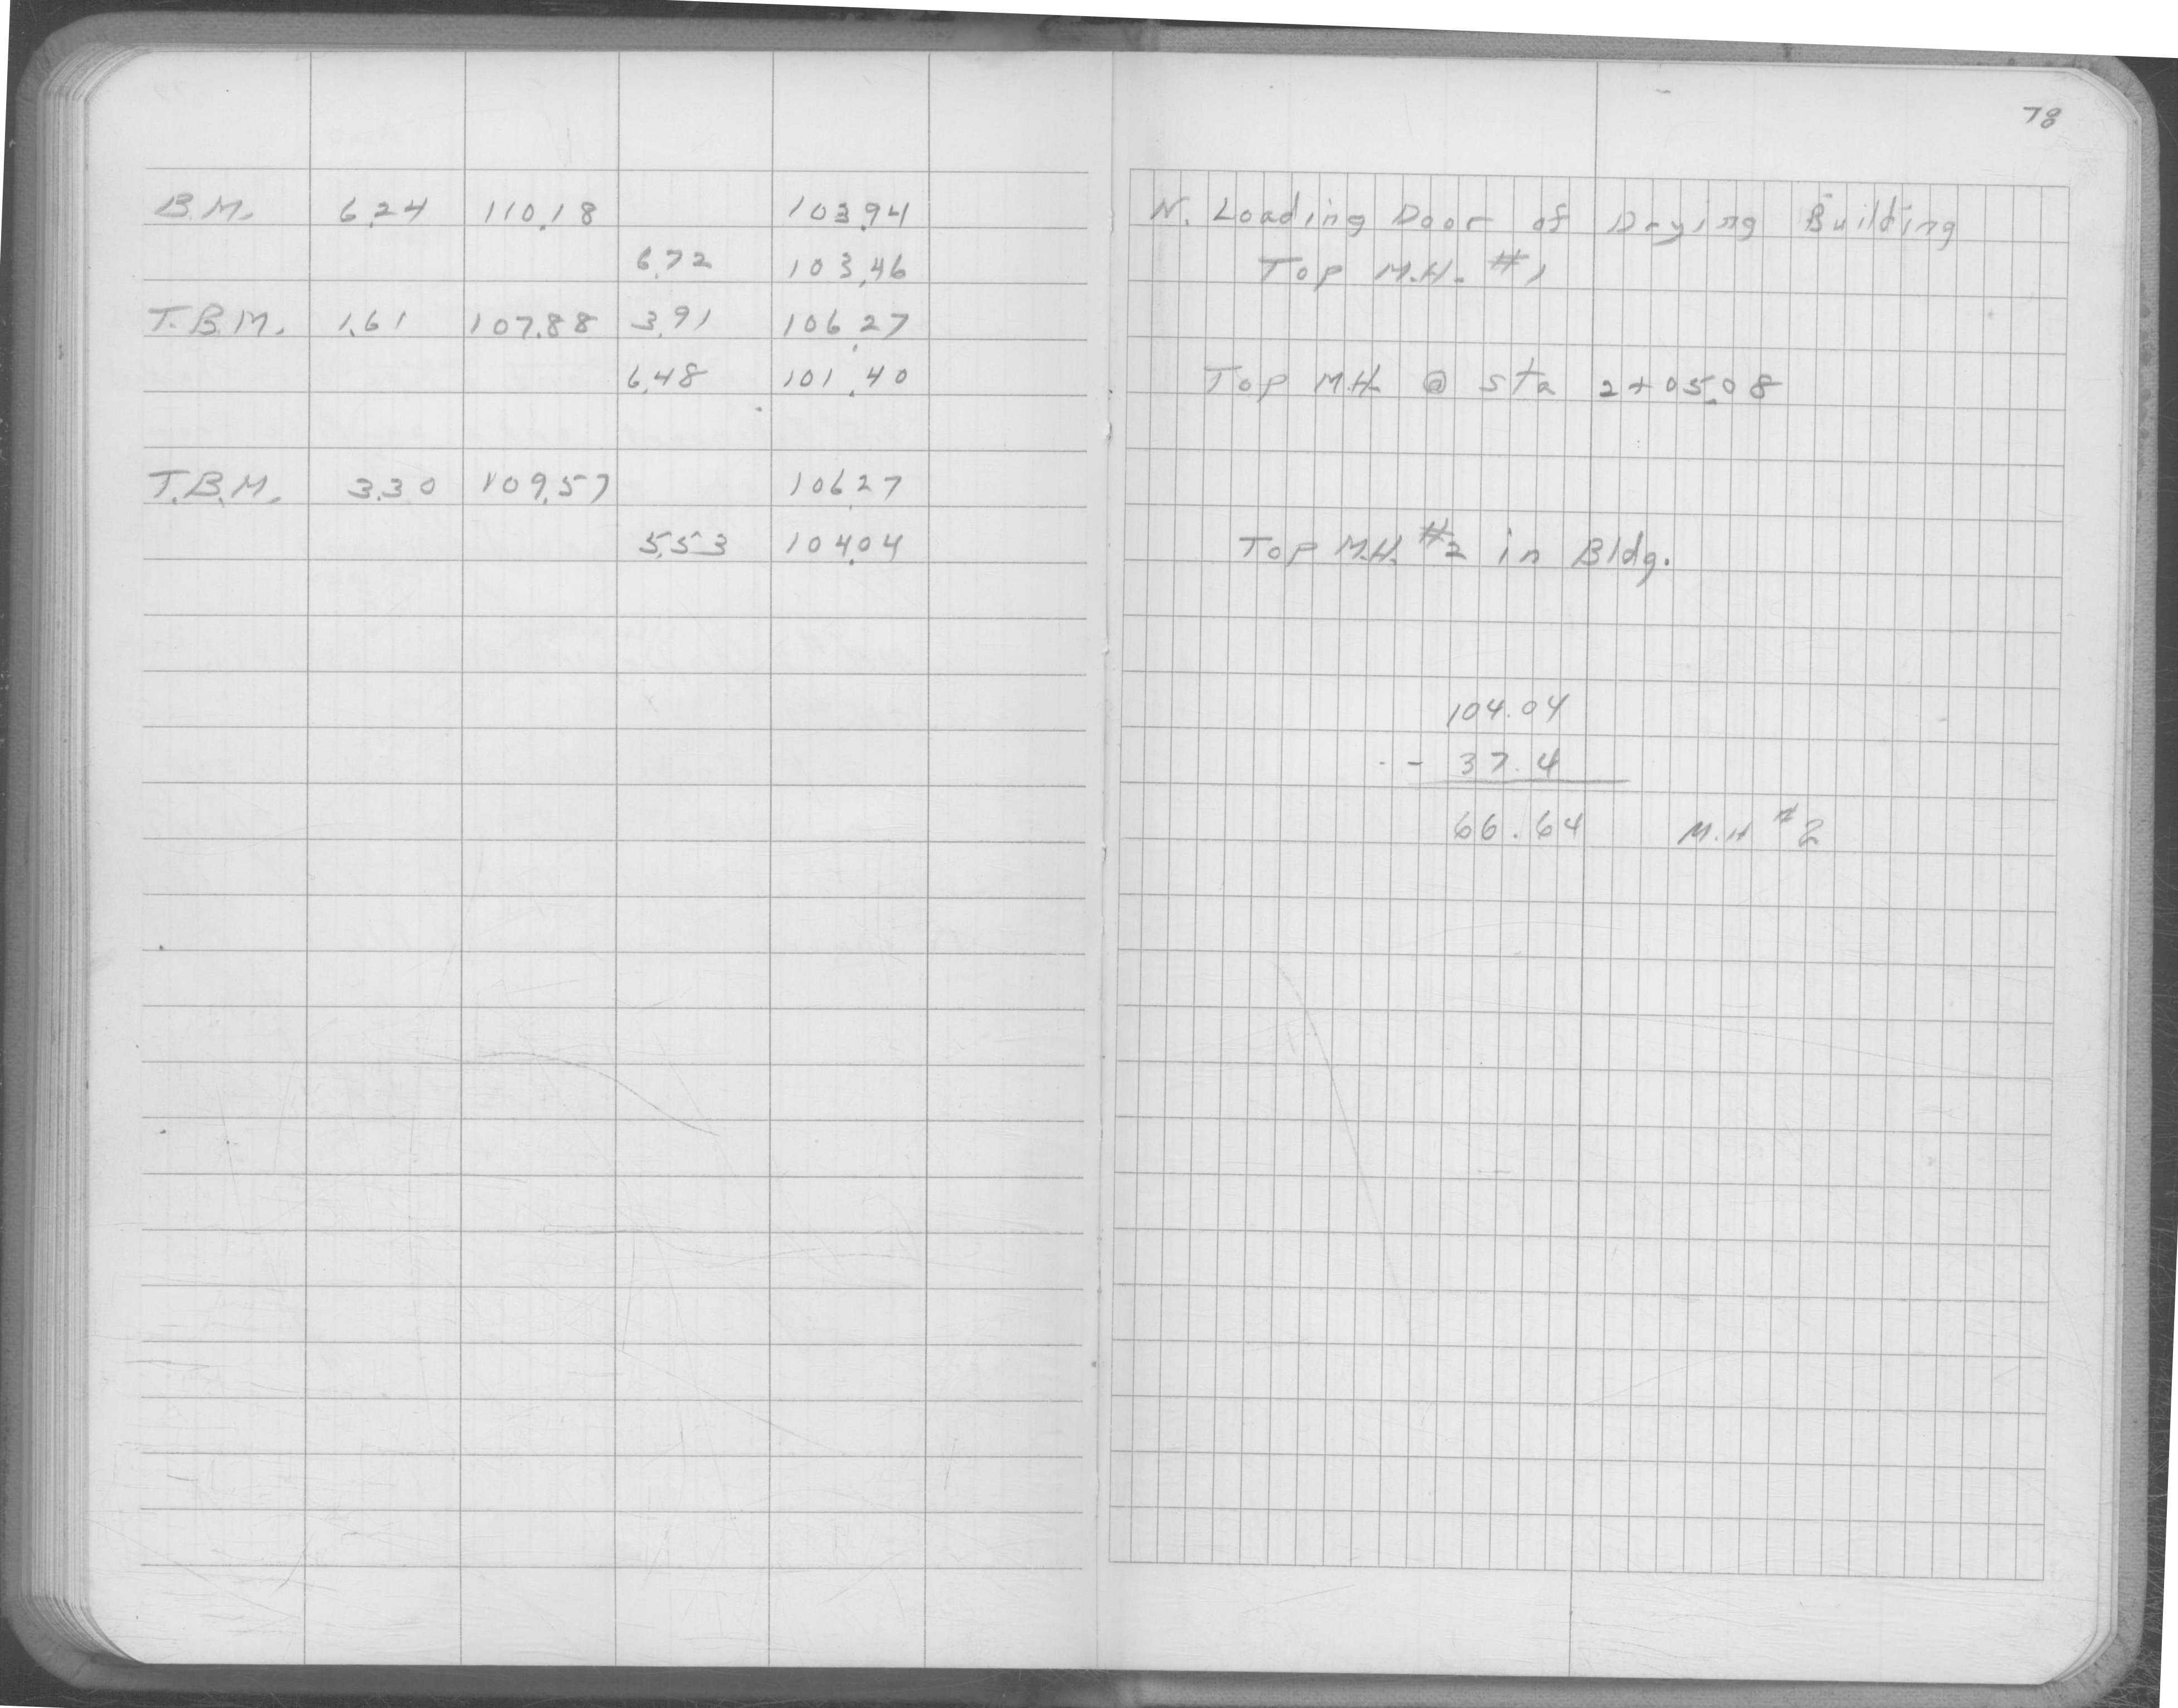 78
B.M. 6.24 110.18 103.94 N. Loading Door of Drying Building
6.72 103.46 Top M.H. #1
T.B.M. 1.61 107.88 3.91 106.27
6.48 101.40 Top M.H. @ sta 2+05.08
T.B.M. 3.30 109.57 106.27
5.53 104.04 Top M.H. #2 in Bldg.
104.04
- 37.4
66.64 M.H #2